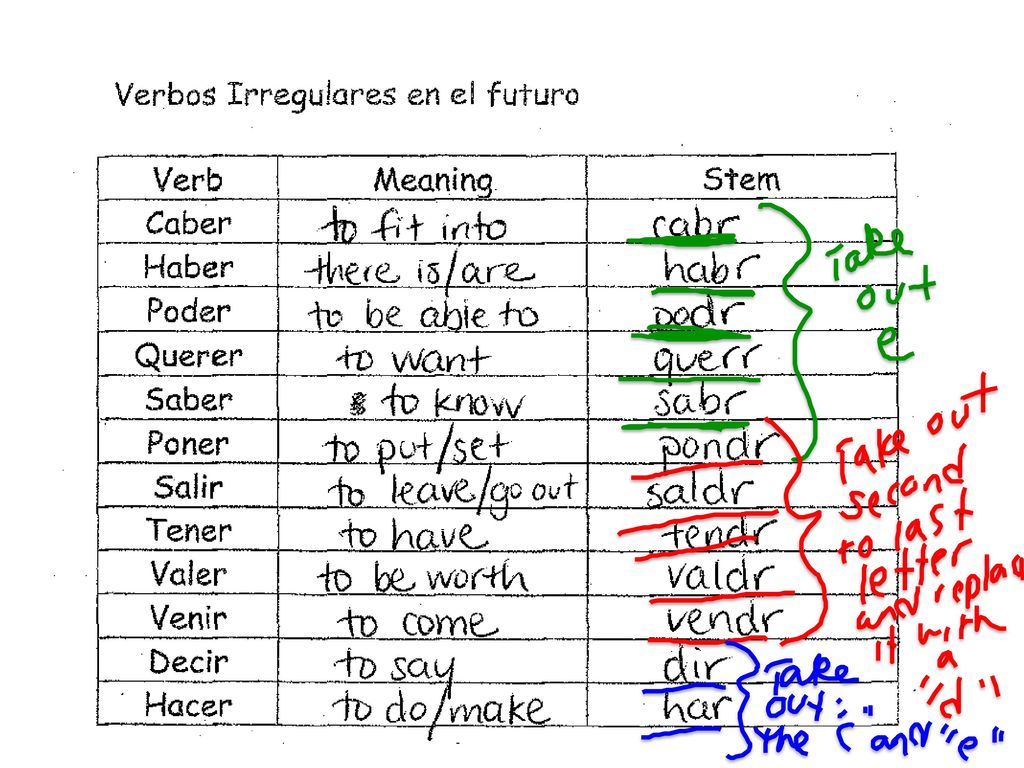 Verbos Irregulares en el futuro
Verb Meaning Stem
Caber to fit into cabr
Haber there is/are habr
Poder to be able to podr
Querer to want querr
Saber to know sabr
Poner to put/set pondr
Salir to leave/go out saldr
Tener to have tendr
Valer to be worth valdr
Venir to come vendr
Decir to say dir
Hacer to do/make har
Take
out
e
Take out
second
to last
letter
and replace
it with
a
"d"
Take
out:"
the c and "e"